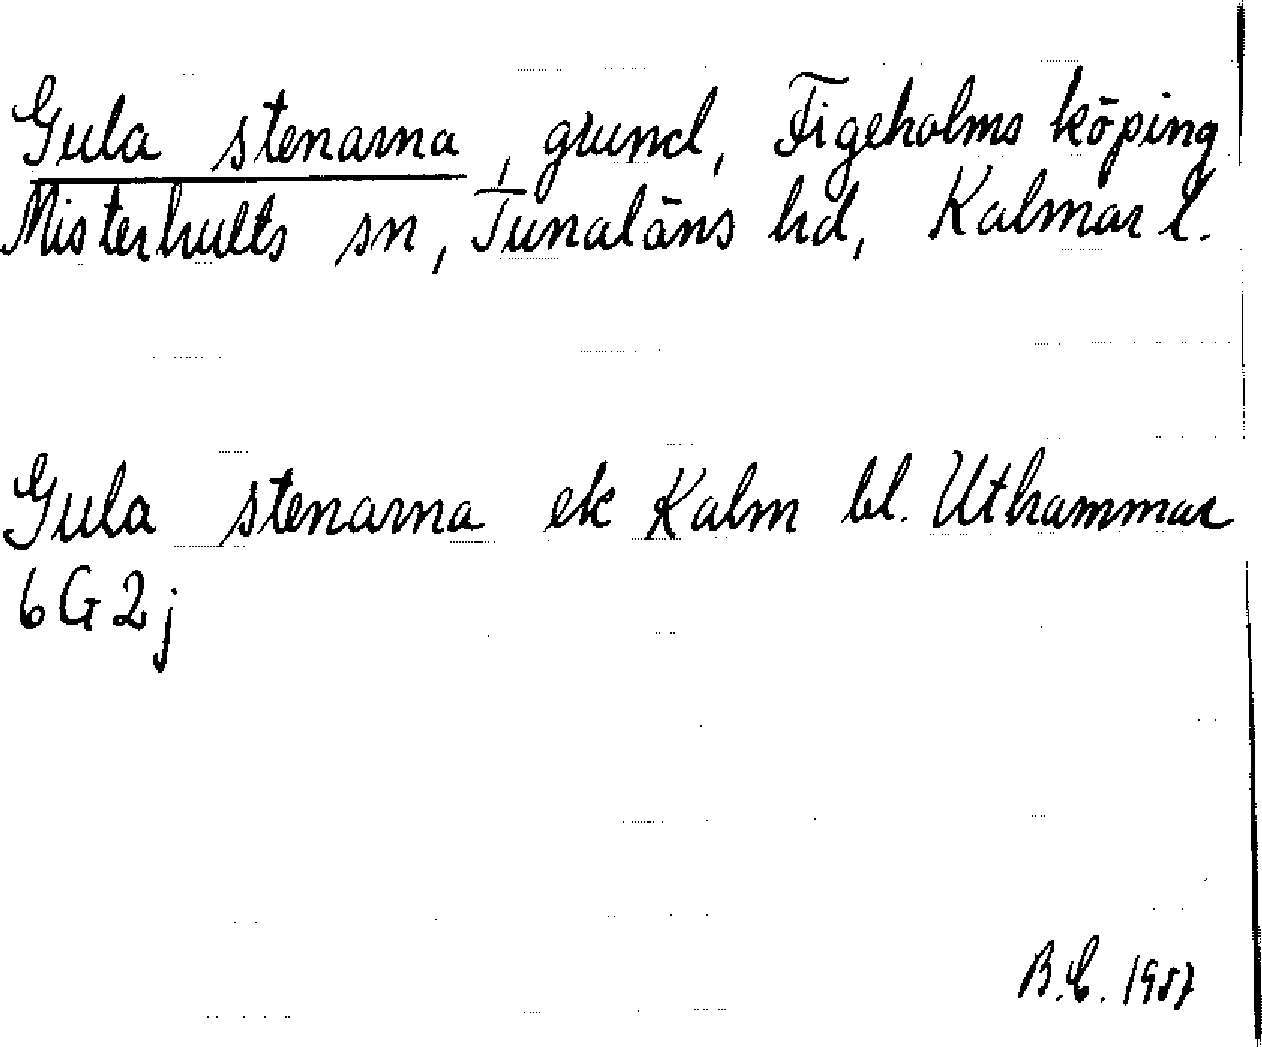 Gula stenarna, grund, Figeholms köping
Misterhults sn, Tunaläns hd, Kalmar l.
Gula stenarna ek Kalm bl. Uthammar
6G2j
B.C. 1957